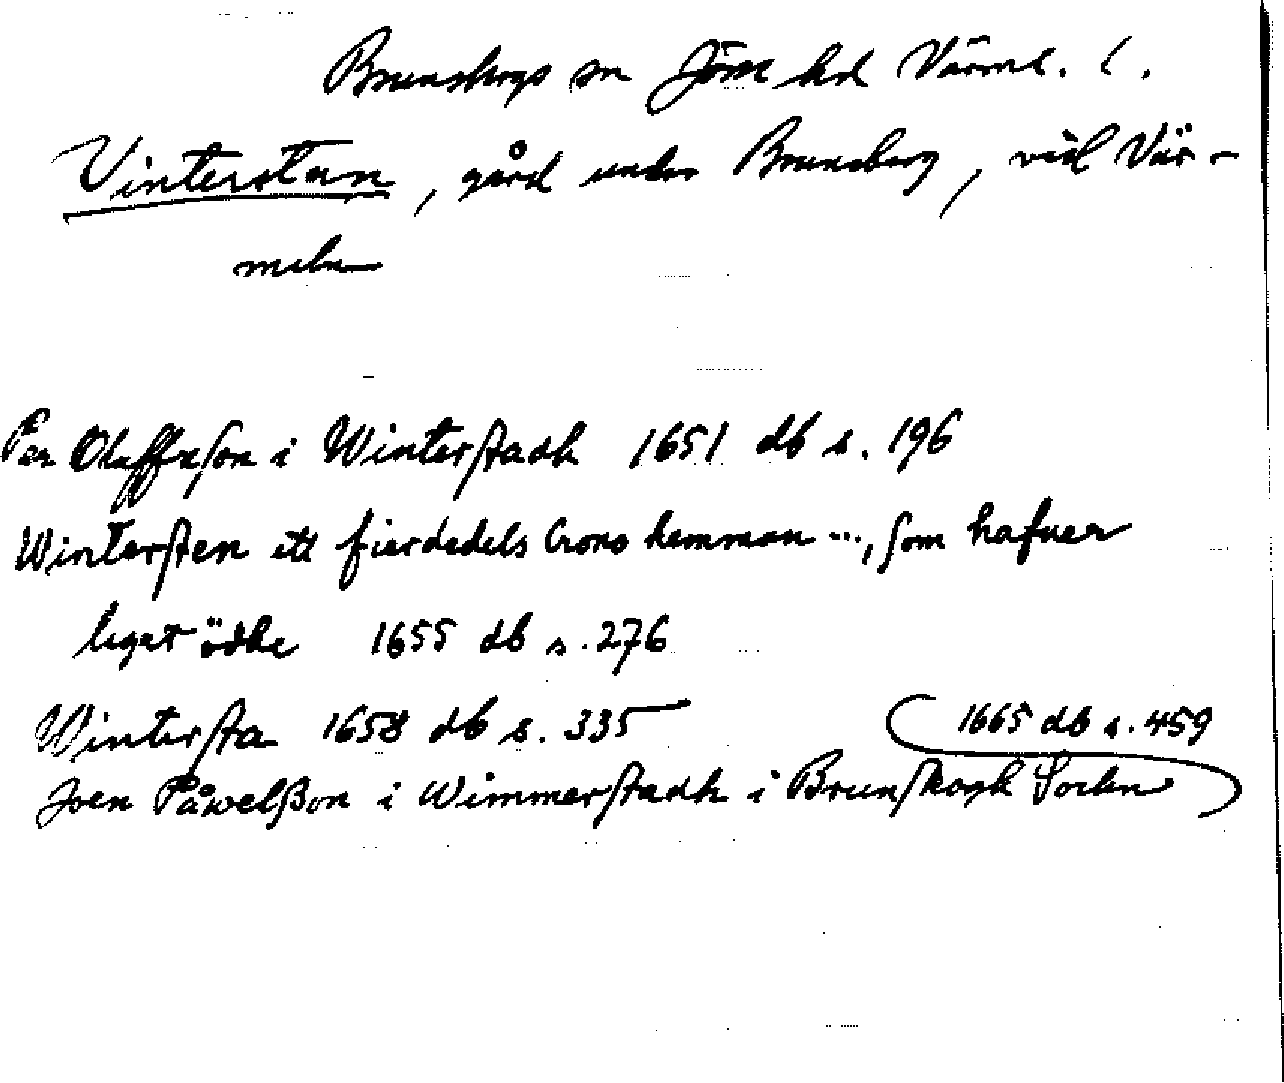 Brunskogs sn Jösse hd Värml. l.
Vinterstan, gård under Brunsberg, vid Vär-
meln
Per Oluffzson i Winterstadh 1651 db s. 196
Wintersten ett fierdedels Crono hemman ..., som hafuer
leget ödhe 1655 db s. 276
Wintersta 1658 db s. 335
1665 db s. 459
Joen Påwelßon i Wimmerstadh i Brunskogh Sochn